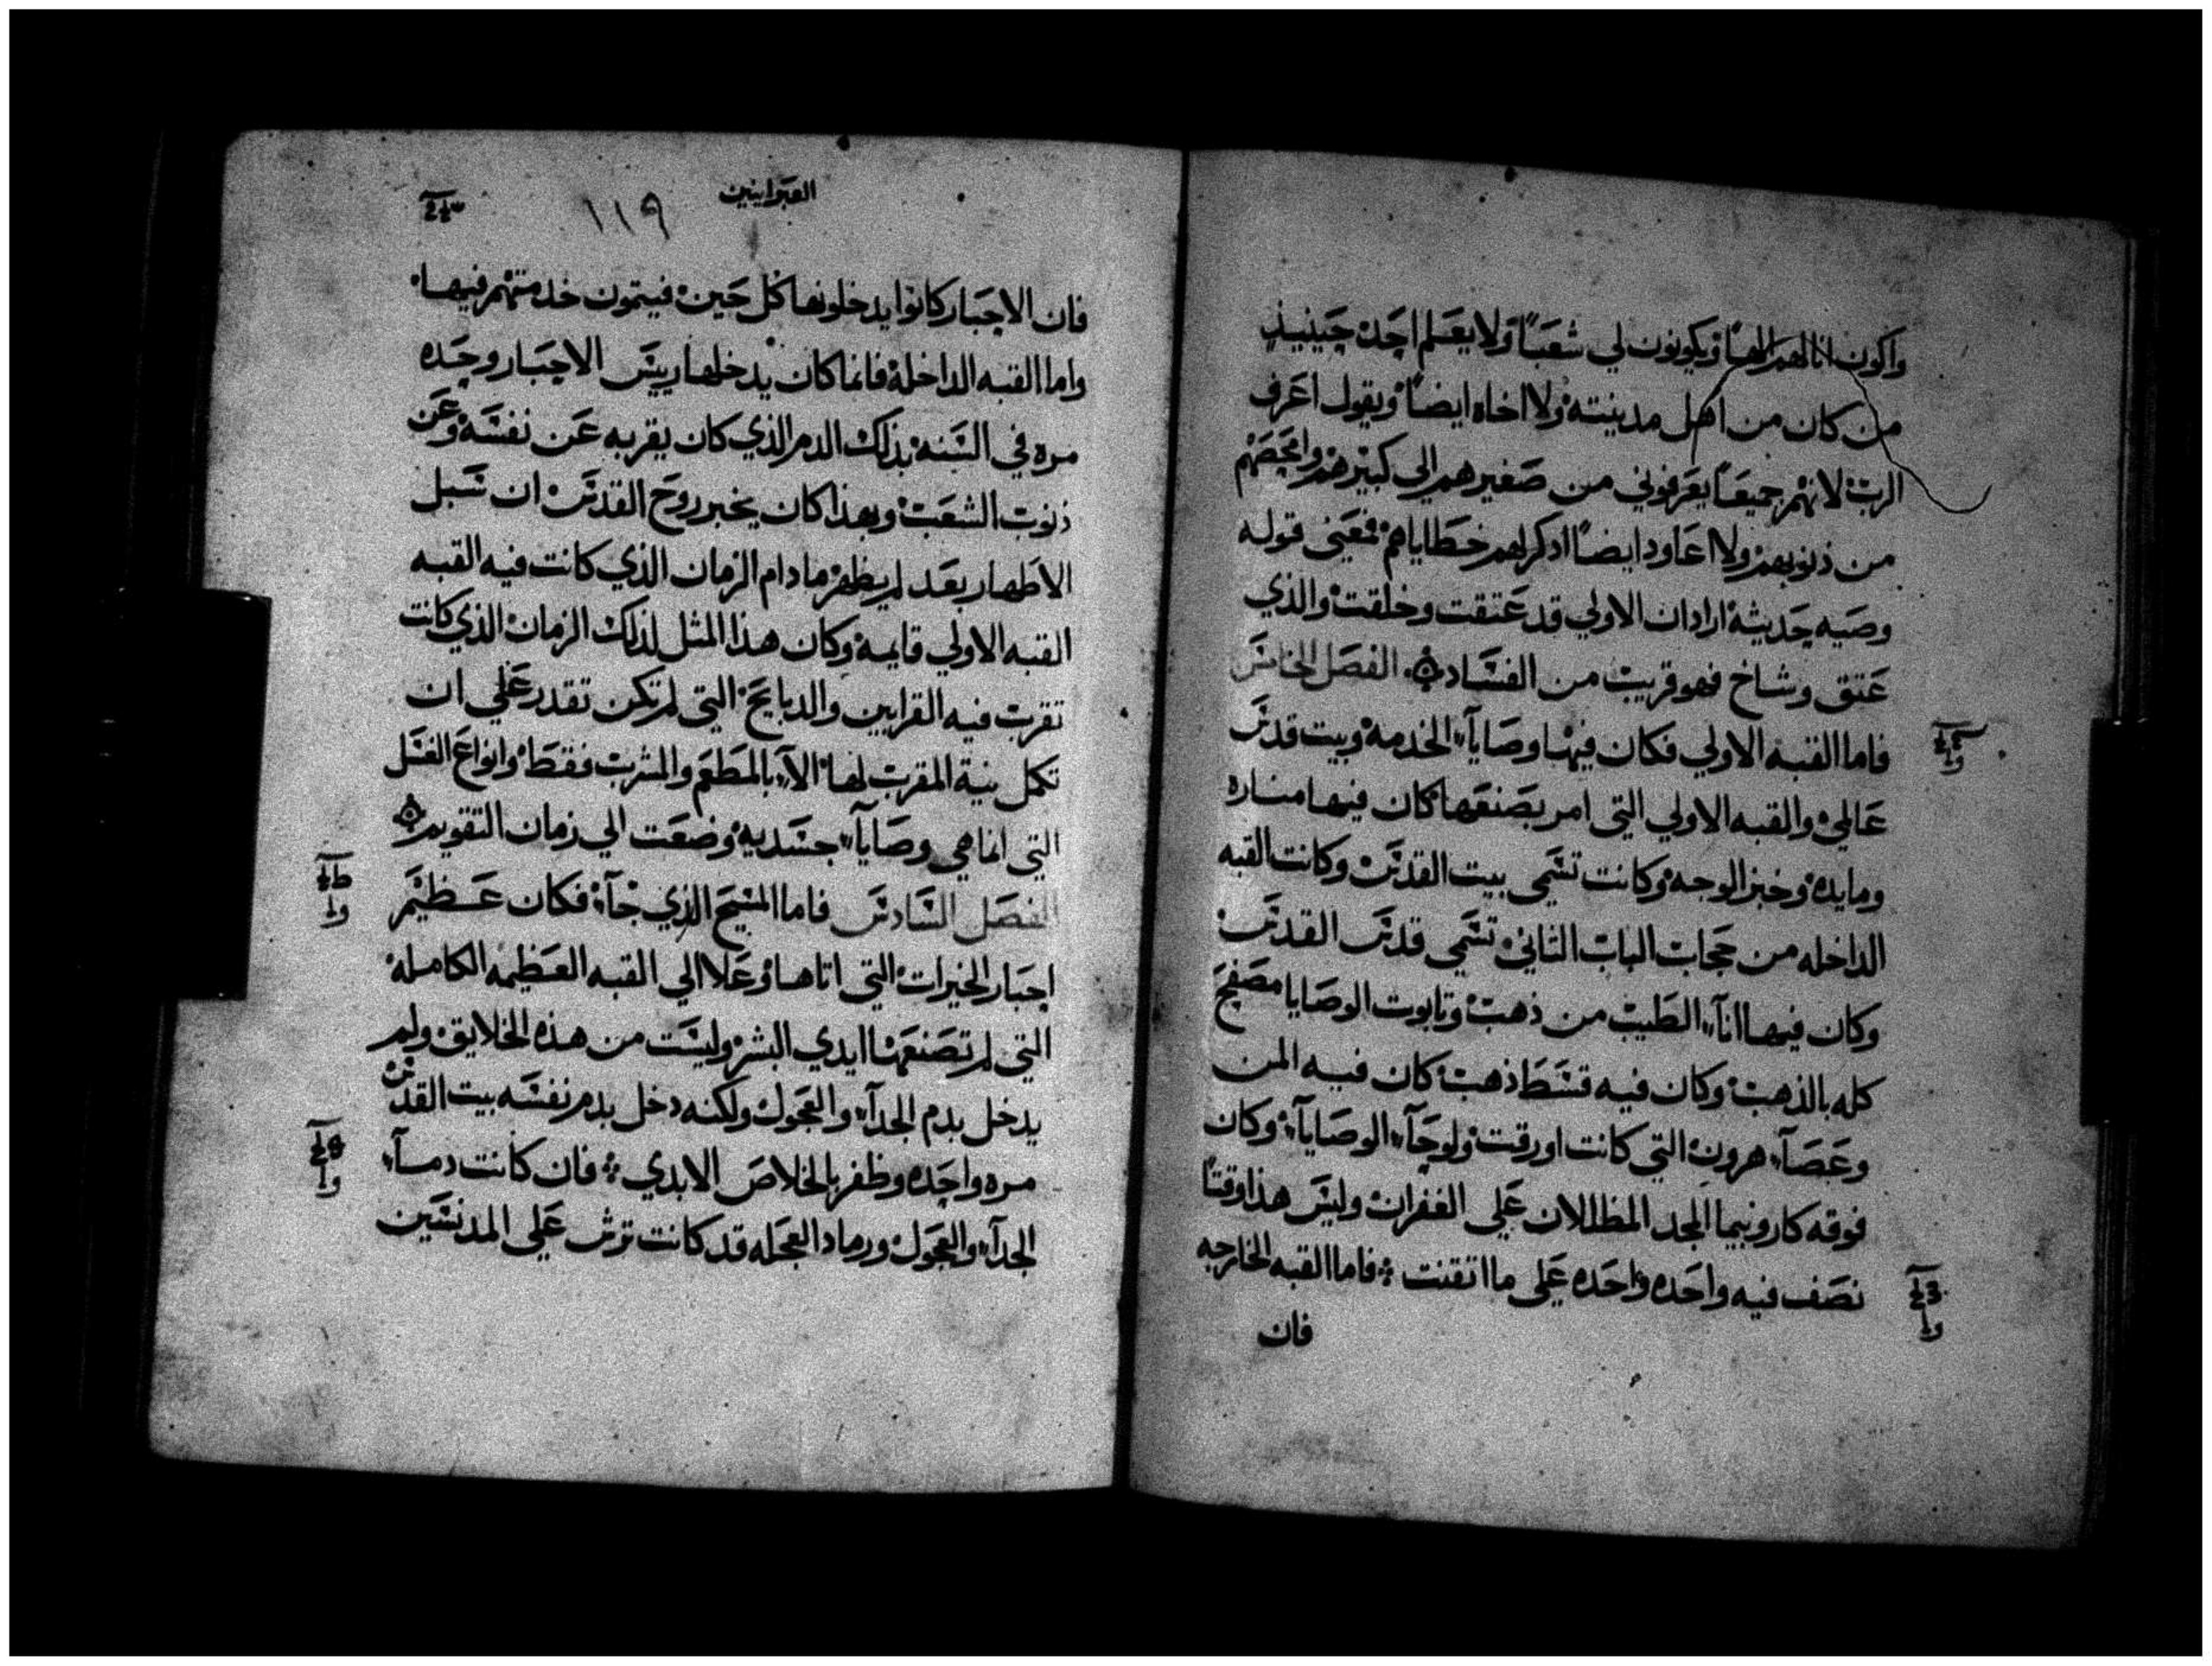 واكون انا لهم الاهًا ويكونون لي شعبًا ولا يعلم احد حينيذٍ
من كان من اهل مدينته ولا اخاه ايضًا ويقول اعرف
الرب لانهم جميعًا يعرفوني من صغيرهم الي كبيرهم وامحصهم
من ذنوبهم ولا اعاود ايضًا اذكر لهم خطاياهم فمعني قوله
وصيه حديثة اراد ان الاولي قد عتقت وخلقت والذي
عتق وشاخ فهو قريب من الفساد الفصل الخامس
فاما القبه الاولي فكان فيها وصايآء الخدمه وبيت قدس
عالمي والقبه الاولي التي امر بصنعها كان فيها مناره
ومايده وخبز الوجه وكانت تسمي بيت القدس وكانت القبه
الداخله من حجاب الباب الثاني تسمي قدس القدس
وكان فيها انآء الطيب من ذهب وتابوت الوصايا مصفح
كله بالذهب وكان فيه قسط ذهب كان فيه المن
وعصآء هرون التي كانت اورقت ولوحآء الوصايآء وكان
فوقه كاروبيما المجد المظللان علي الغفران وليس هذا وقتًا
نصف فيه واحده واحده علي ما اتقنت فاما القبه الخارجه
فان
العبرانيين
١١٩
فان الاحبار كانوا يدخلونها كل حين فيتمون خدمتهم فيها
واما القبه الداخلة فانما كان يدخلها رييس الاحبار وحده
مره في السنه بذلك الدم الذي كان يقربه عن نفسه وعن
ذنوب الشعب وبهذا كان يخبر روح القدس ان سبل
الاطهار بعد لم يظهر ما دام الزمان الذي كانت فيه القبه
القبه الاولي قايمه وكان هذا المثل لذلك الزمان الذي كانت
تقرب فيه القرابين والدبايح التي لم تكن تقدر علي ان
تكمل نية المقرب لها الآء بالمطعم والمشرب فقط وانواع الغسل
التي انما هي وصايآء جسديه وضعت الي زمان التقويم
الفصل السادس فاما المسيح الذي جآء فكان عظيم
احبار الخيرات التي اتاها وعلا الي القبه العظيمه الكامله
التي لم تصنعها ايدي البشر وليست من هذه الخلايق ولم
يدخل بدم الجدآء والعجول ولكنه دخل بدم نفسه بيت القدس
مره واحده وظفر بالخلاص الابدي فان كانت دمآء
الجدآء والعجول ورماد العجله قد كانت ترش علي المدنسين